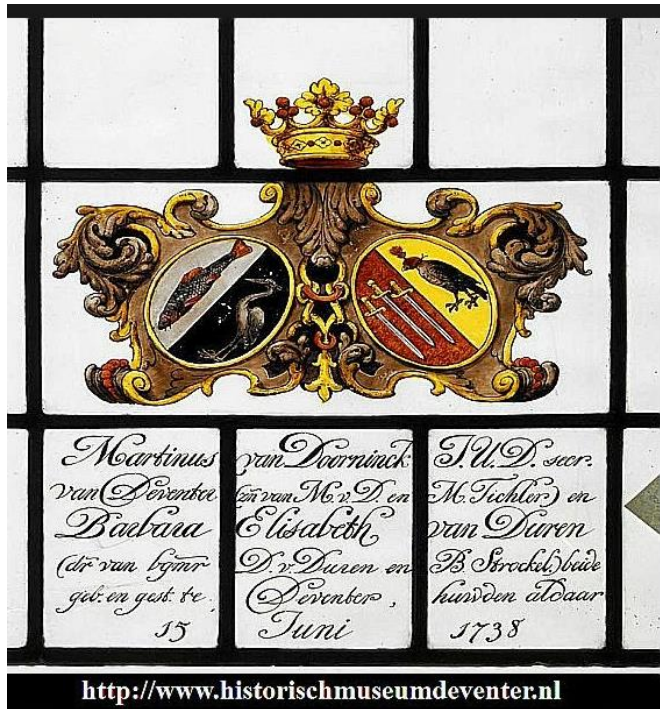 Martinus van Doorninck J.U.D. secr.
van Deventer (zn van M.v.D. en M. Tichler) en
Barbara Elisabeth van Duren
(dr van bgmr D.v.Duren en B. Strockel) beide
geb. en gest. te Deventer, huwden aldaar
15 Juni 1738
http://www.historischmuseumdeventer.nl